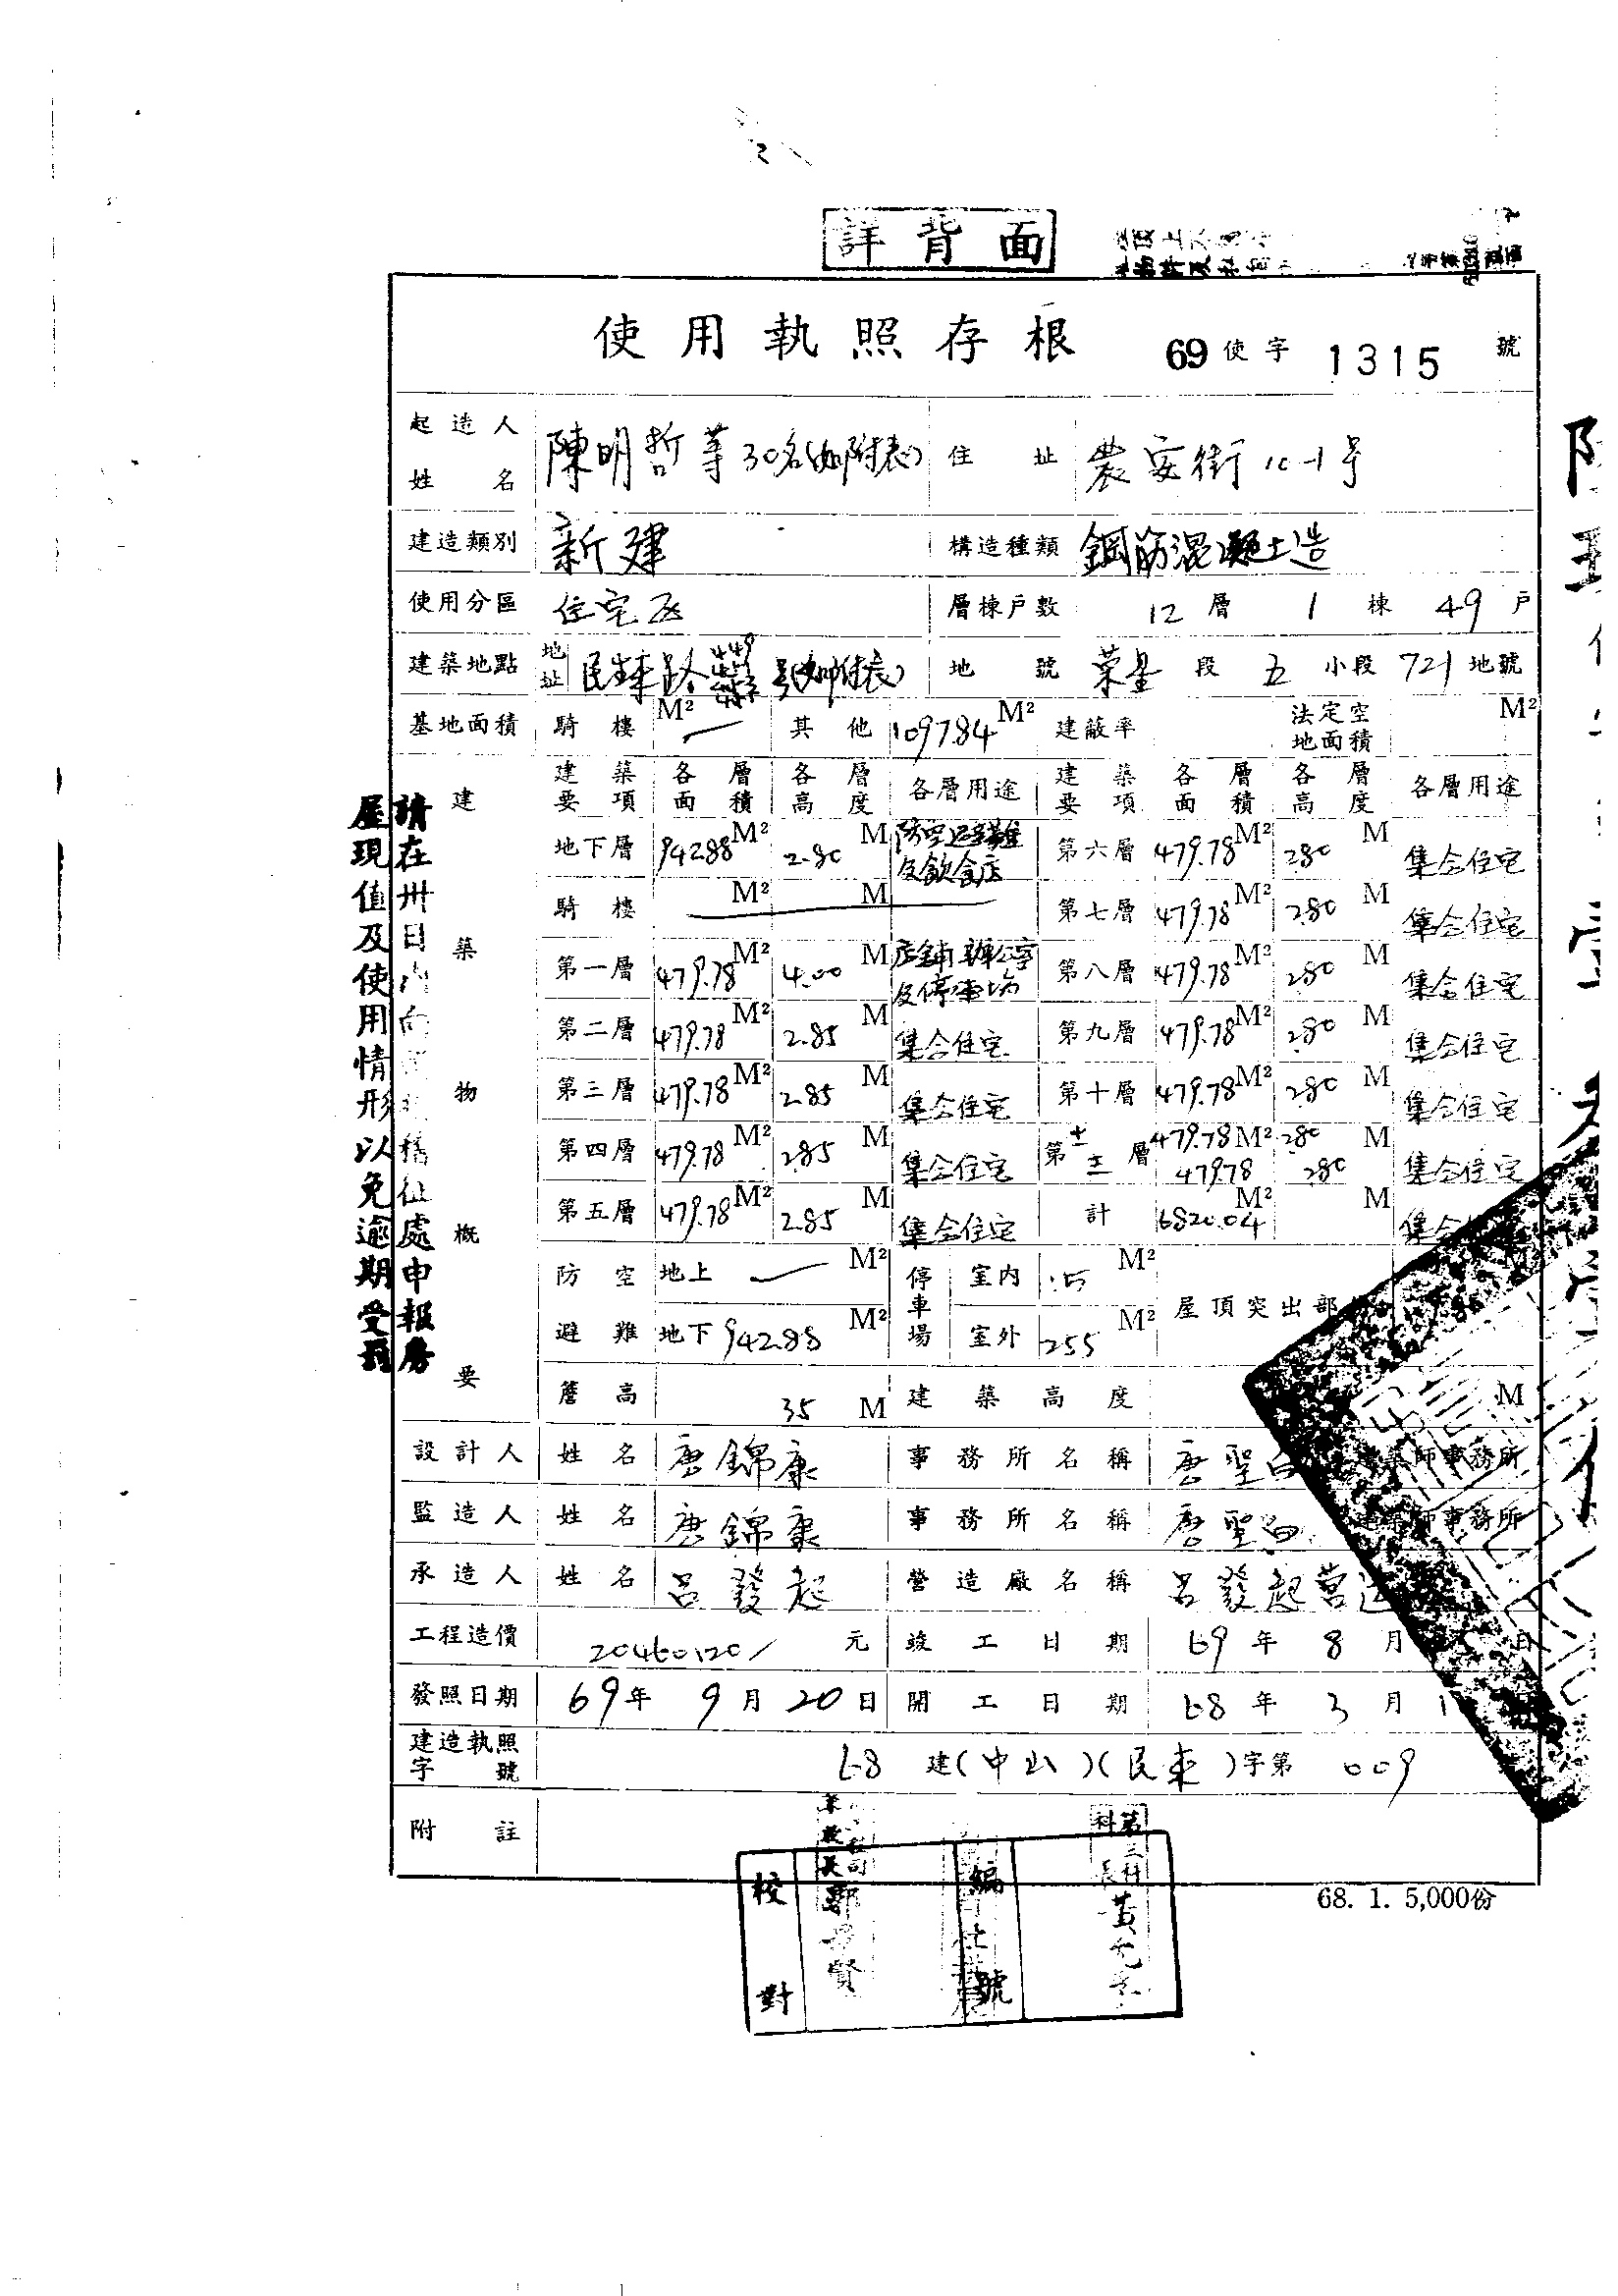 詳背面
使用執照存根 69使字 1315 號
起造人姓名 陳明哲等30名(如附表) 住址 農安街10-1号
建造類別 新建 構造種類 鋼筋混凝土造
使用分區 住宅区 層棟戶數 12層 1棟 49戶
建築地點 地址 民生東路 号(如附表) 地號 榮星段五小段721地號
基地面積 騎樓 M² 其他 1097.84 M² 建蔽率 法定空地面積 M²
建築物概要
建築要項 各層面積 各層高度 各層用途 建築要項 各層面積 各層高度 各層用途
地下層 942.88 M² 2.80 M 防空避難及飲食店 第六層 479.78 M² 2.80 M 集合住宅
騎樓 M² M 第七層 479.78 M² 2.80 M 集合住宅
第一層 479.78 M² 4.00 M 店鋪 辦公室及停車場 第八層 479.78 M² 2.80 M 集合住宅
第二層 479.78 M² 2.85 M 集合住宅 第九層 479.78 M² 2.80 M 集合住宅
第三層 479.78 M² 2.85 M 集合住宅 第十層 479.78 M² 2.80 M 集合住宅
第四層 479.78 M² 2.85 M 集合住宅 第十一 十二層 479.78 M² 2.80 M 479.78 2.80 集合住宅
第五層 479.78 M² 2.85 M 集合住宅 計 6820.04 M² M 集合
防空避難 地上 M² 停車場 室內 15 M² 屋頂突出部
地下 942.88 M² 室外 255 M²
簷高 35 M 建築高度 M
設計人 姓名 唐錦康 事務所名稱 唐聖白建築師事務所
監造人 姓名 唐錦康 事務所名稱 唐聖白建築師事務所
承造人 姓名 呂發起 營造廠名稱 呂發起營造
工程造價 20460120/ 元 竣工日期 69年8月 日
發照日期 69年9月20日 開工日期 68年3月
建造執照字號 68 建(中山)(民東)字第 009
附註
68. 1. 5,000份
請在卅日內向 稽征處申報房
屋現值及使用情形以免逾期受罰
校對
編號
第三科科長黃